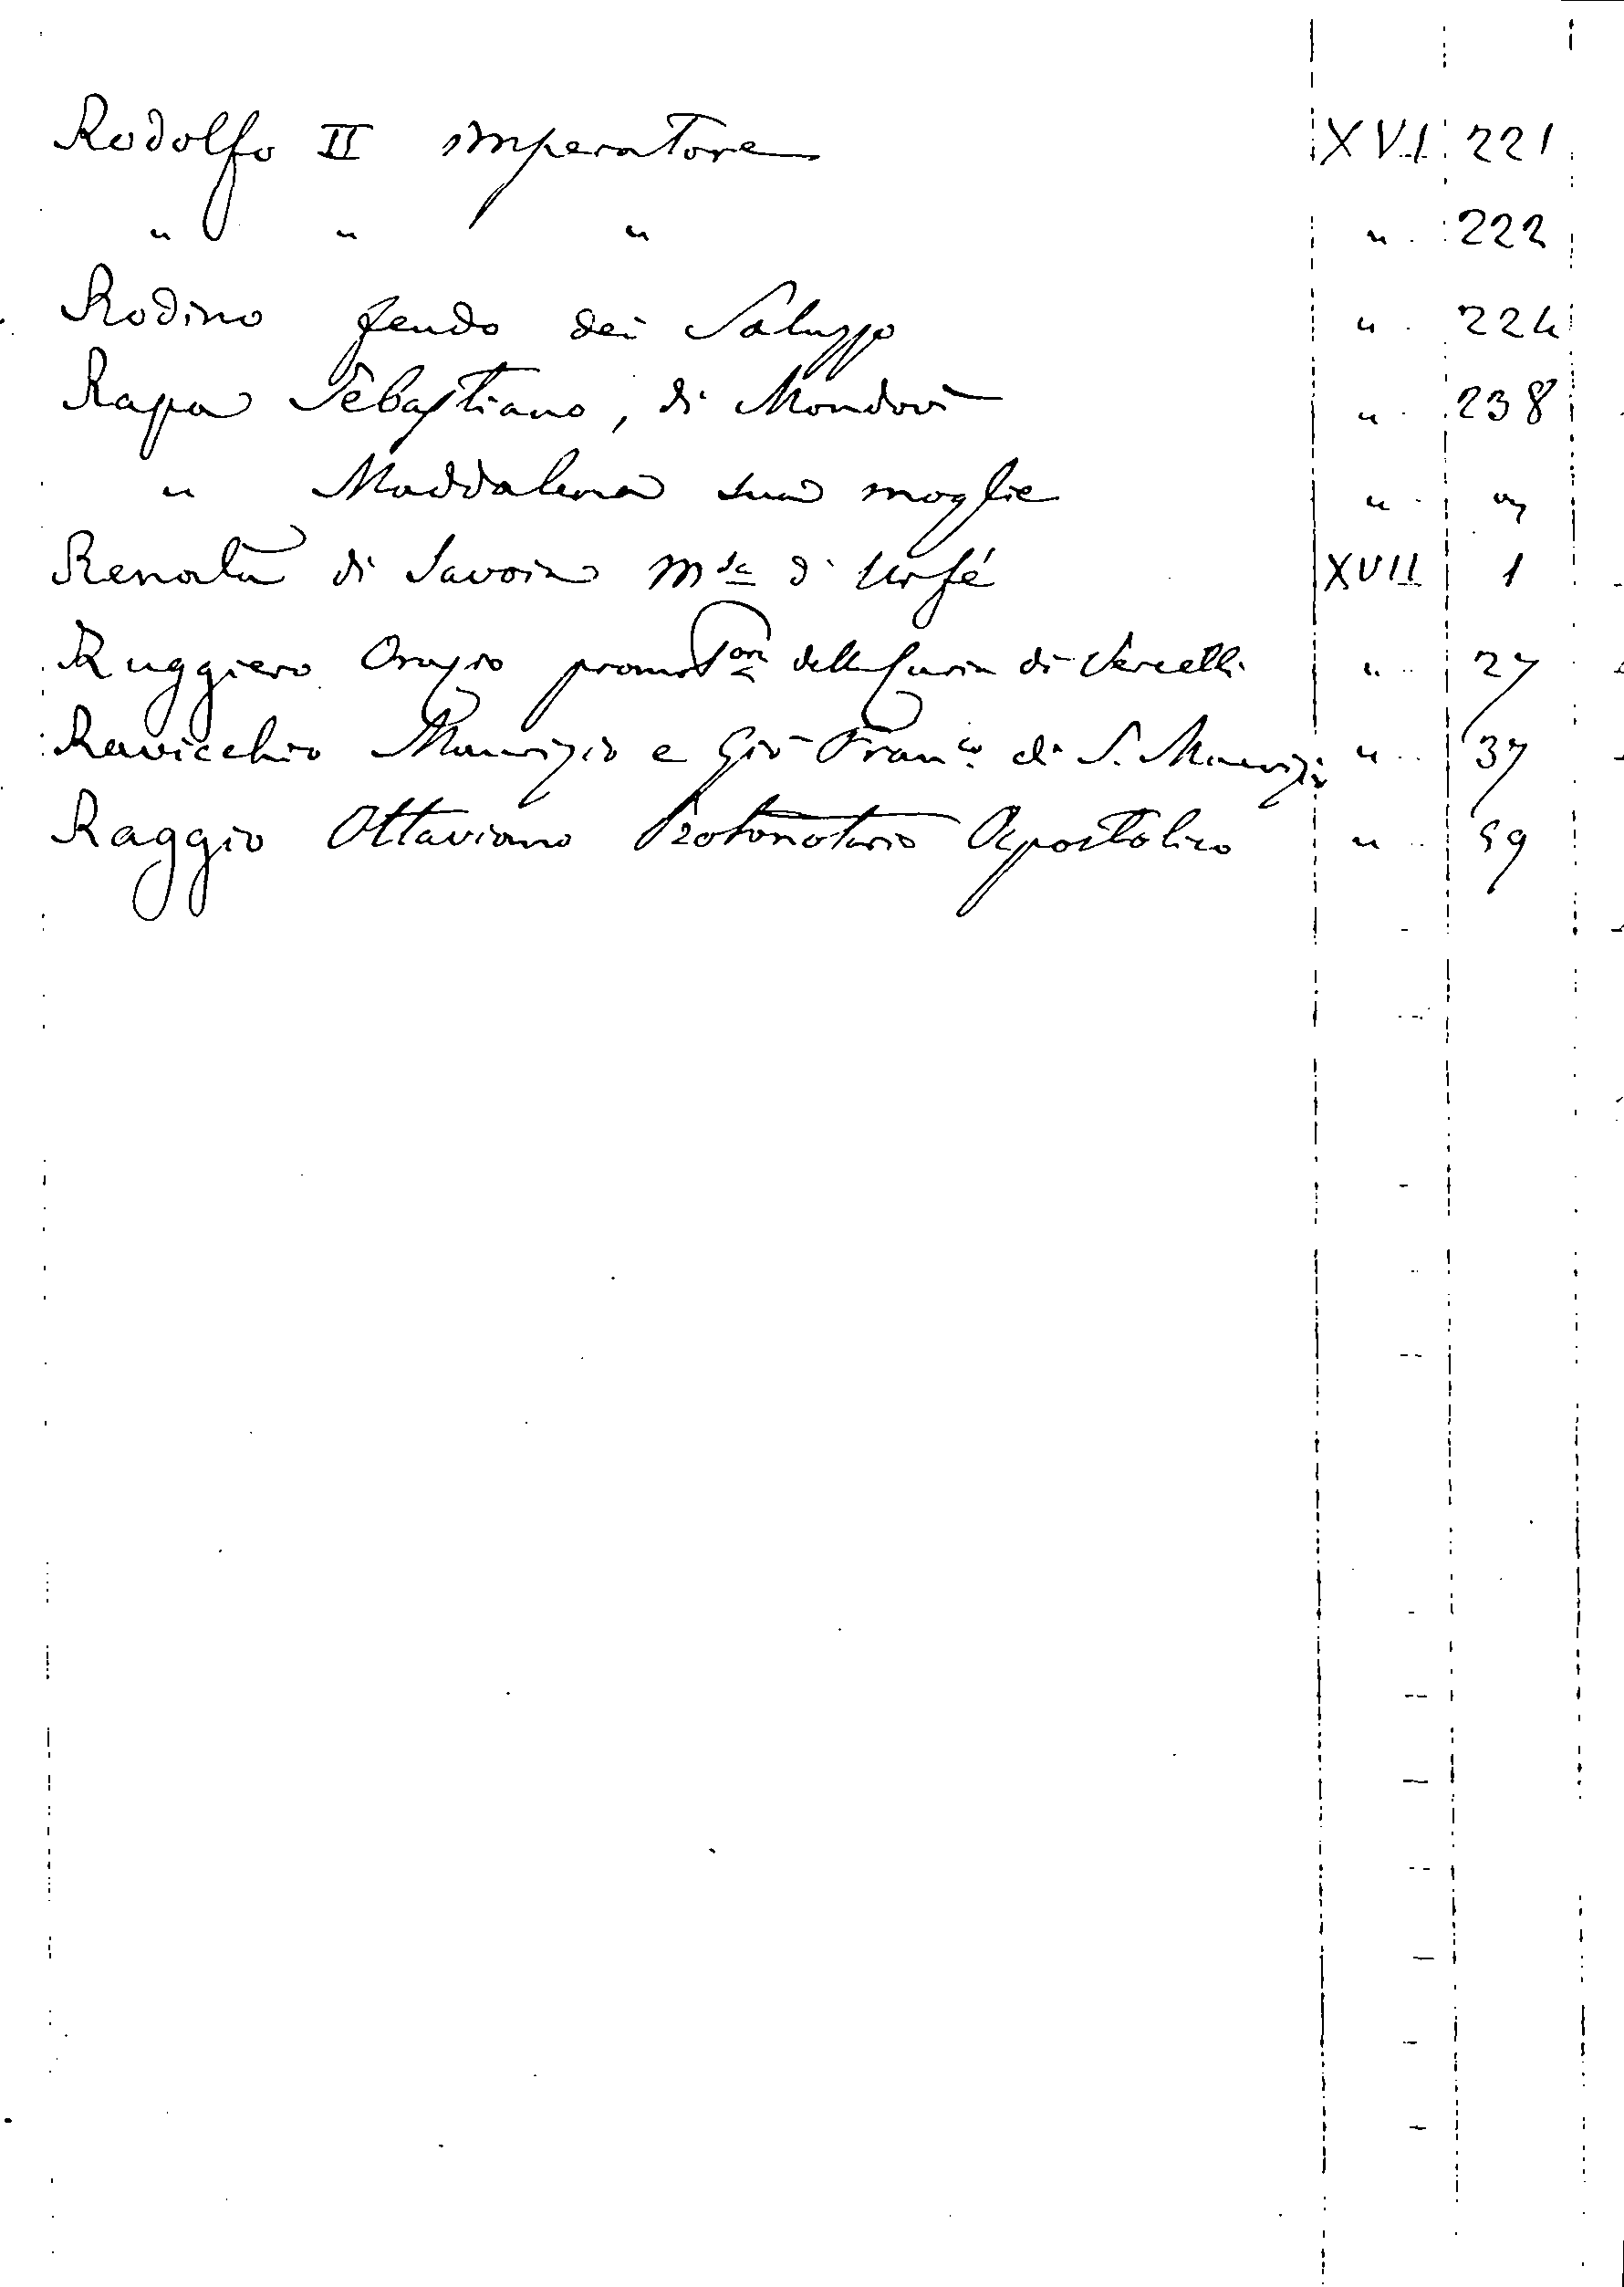 Rodolfo II imperatore XVI 221
" " " " 222
Rodino feudo dei Saluzzo " 224
Rapa Sebastiano, di Mondovì " 238
" Maddalena sua moglie " "
Renata di Savoia M.sa d'Urfé XVII 1
Ruggiero Orazio della Curia di Vercelli " 27
Ravicchio Maurizio e Gio Fran.co di S. Maurizio " 37
Raggio Ottaviano Protonotario Apostolico " 59